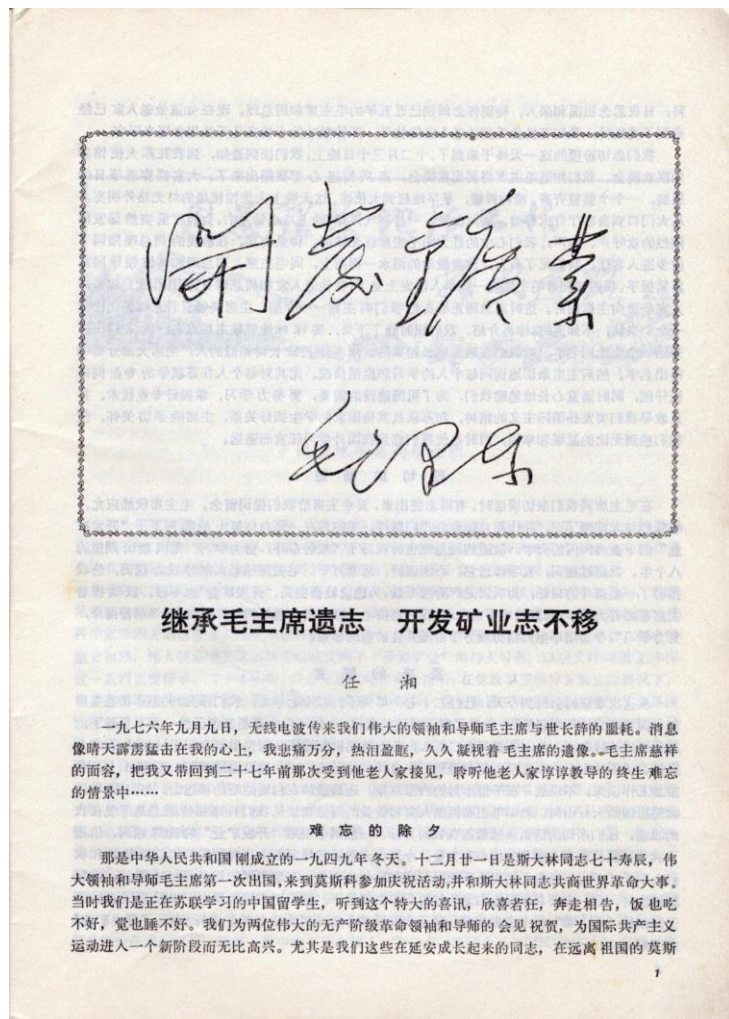 开发矿业
毛泽东
继承毛主席遗志 开发矿业志不移
任 湘
一九七六年九月九日，无线电波传来我们伟大的领袖和导师毛主席与世长辞的噩耗。消息
像晴天霹雳猛击在我的心上，我悲痛万分，热泪盈眶，久久凝视着毛主席的遗像。毛主席慈祥
的面容，把我又带回到二十七年前那次受到他老人家接见，聆听他老人家谆谆教导的终生难忘
的情景中……
难忘的除夕
那是中华人民共和国刚成立的一九四九年冬天。十二月廿一日是斯大林同志七十寿辰，伟
大领袖和导师毛主席第一次出国，来到莫斯科参加庆祝活动，并和斯大林同志共商世界革命大事。
当时我们是正在苏联学习的中国留学生，听到这个特大的喜讯，欣喜若狂，奔走相告，饭也吃
不好，觉也睡不好。我们为两位伟大的无产阶级革命领袖和导师的会见祝贺，为国际共产主义
运动进入一个新阶段而无比高兴。尤其是我们这些在延安成长起来的同志，在远离祖国的莫斯
1